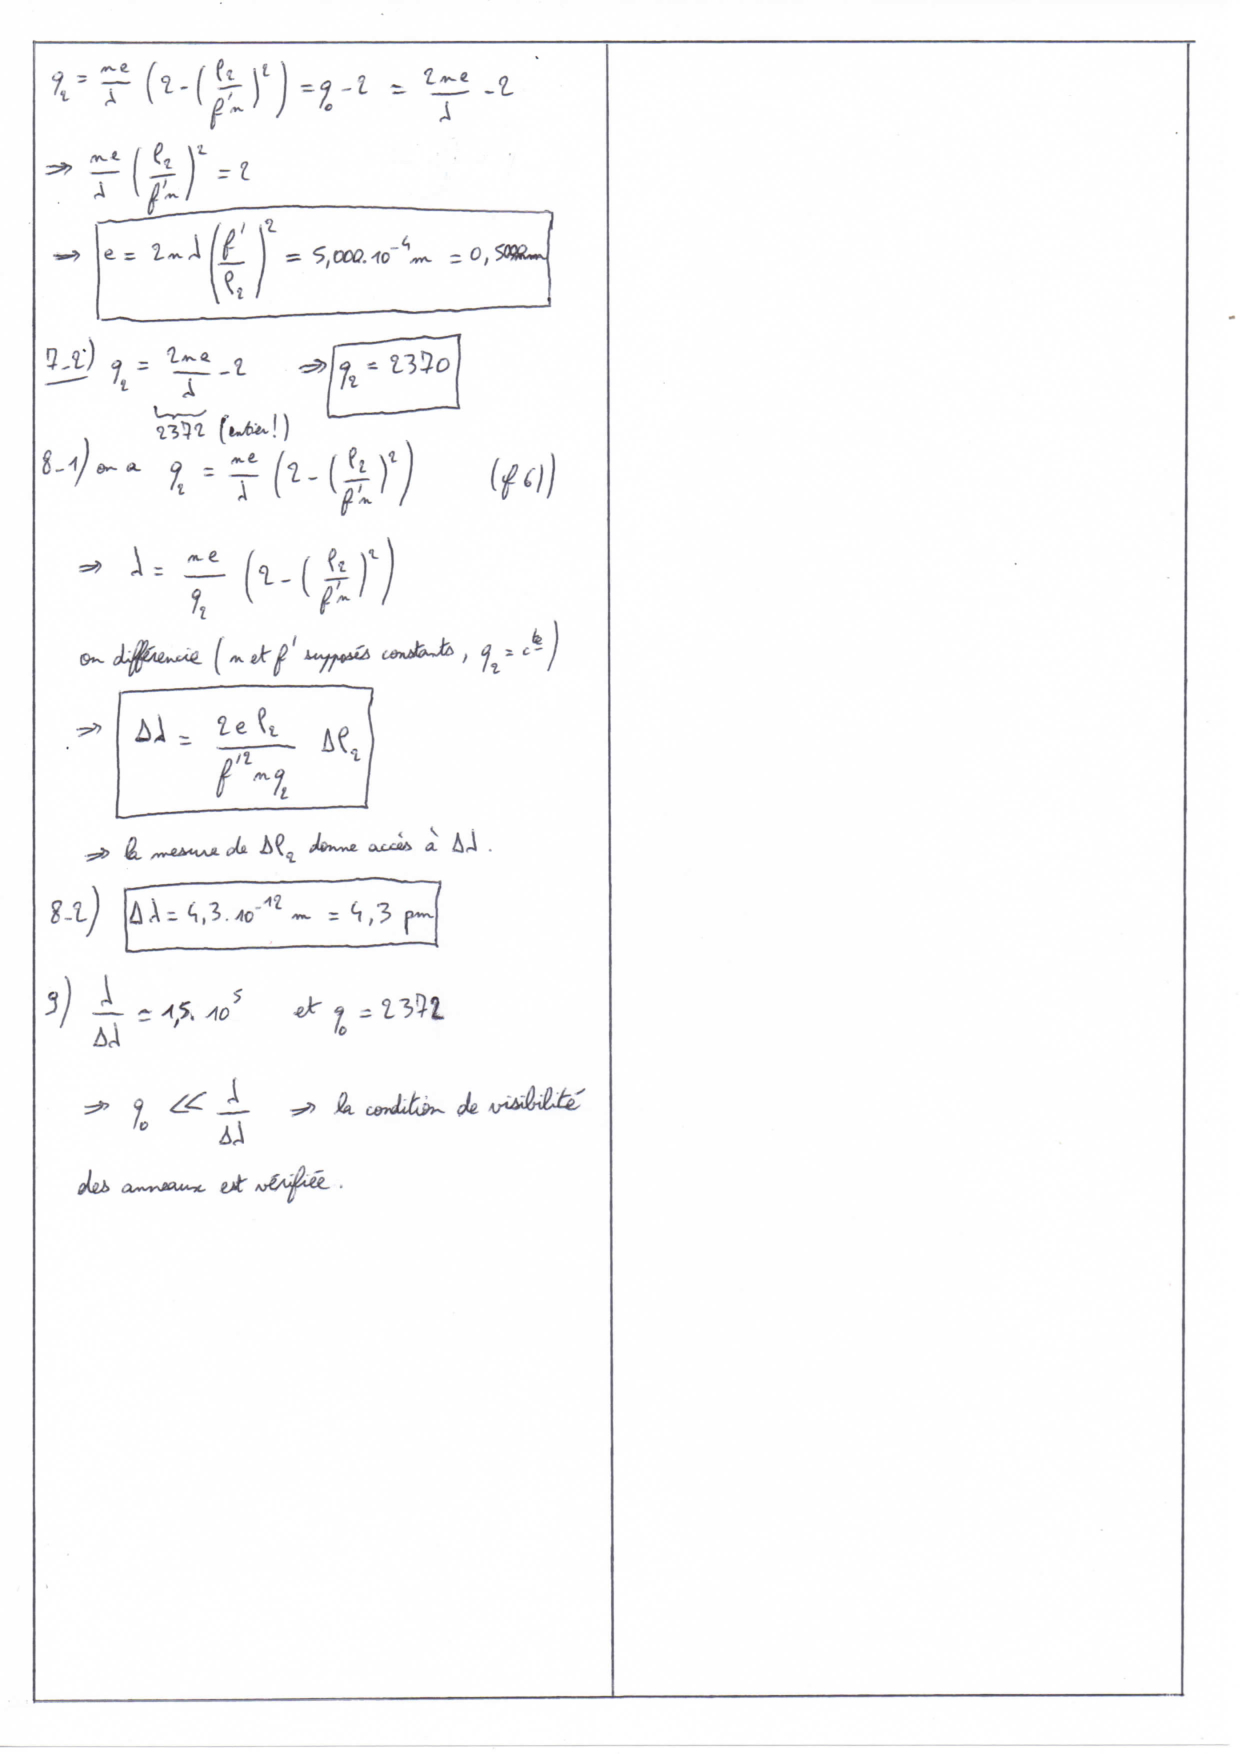 q₂ = ne/λ (2 - (ρ₂/f'n)²) = q₀ - 2 = 2ne/λ - 2
⇒ ne/λ (ρ₂/f'n)² = 2
⇒ e = 2nλ (f'/ρ₂)² = 5,000.10⁻⁴ m = 0,5000mm
7-2) q₂ = 2ne/λ - 2 ⇒ q₂ = 2370
2372 (entier!)
8-1) on a q₂ = ne/λ (2 - (ρ₂/f'n)²) (cf 6))
⇒ λ = ne/q₂ (2 - (ρ₂/f'n)²)
on différencie (n et f' supposés constants, q₂ = cte)
⇒ Δλ = 2eρ₂/f'²nq₂ Δρ₂
⇒ la mesure de Δρ₂ donne accès à Δλ.
8-2) Δλ = 4,3.10⁻¹² m = 4,3 pm
9) λ/Δλ = 1,5.10⁵ et q₀ = 2372
⇒ q₀ << λ/Δλ ⇒ la condition de visibilité
des anneaux est vérifiée.